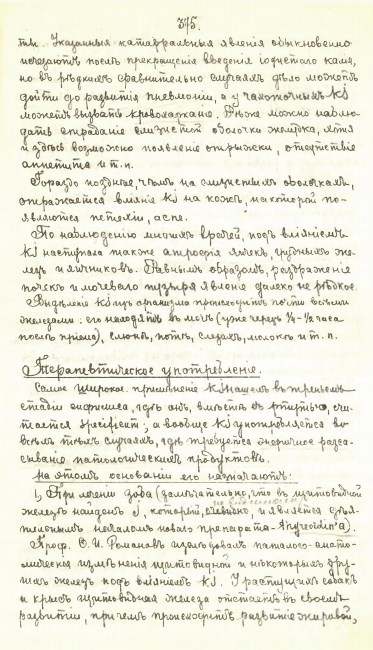 375.
ты. Указанныя катарральныя явленія обыкновенно
исчезаютъ послѣ прекращенія введенія іодистаго калія,
но въ рѣдкихъ сравнительно случаяхъ дѣло можетъ
дойти до развитія пневмоніи, а у чахоточныхъ KJ
можетъ вызвать кровохарканіе. Также можно наблю-
дать страданіе слизистой оболочки желудка, хотя
и здѣсь возможно появленіе отрыжки, отсутствіе
аппетита и т. п.
Гораздо позднѣе, чѣмъ на слизистыхъ оболочкахъ,
отражается вліяніе KJ на кожѣ, на которой по-
являются петехіи, acne.
По наблюденію многихъ врачей, подъ вліяніемъ
KJ наступала также атрофія яичекъ, грудныхъ же-
лезъ и яичниковъ. Равнымъ образомъ, раздраженіе
почекъ и мочевого пузыря явленіе далеко не рѣдкое.
Выдѣленіе KJ изъ организма происходитъ почти всѣми
железами: его находятъ въ мочѣ (уже черезъ ¼-½ часа
послѣ пріема), слюнѣ, потѣ, слезахъ, молокѣ и т. п.
Терапевтическое употребленіе.
Самое широкое примѣненіе KJ нашелъ въ третьемъ
стадіи сифилиса, гдѣ онъ, вмѣстѣ съ ртутью, счи-
тается specificum; а вообще KJ употребляется во
всѣхъ тѣхъ случаяхъ, гдѣ требуется энергичное разса-
сываніе патологическихъ продуктовъ.
На этомъ основаніи его назначаютъ:
1) При леченіи зоба (замѣчательно, что въ щитовидной
железѣ найденъ J, который, и является дѣя-
тельнымъ началомъ новаго препарата - Thyreoidin'a).
Проф. С. И. Романовъ изслѣдовалъ патолого-анато-
мическія измѣненія щитовидной и нѣкоторыхъ дру-
гихъ железъ подъ вліяніемъ KJ. У растущихъ собакъ
и крысъ щитовидная железа отстаетъ въ своемъ
развитіи, при чемъ происходитъ развитіе жировой,